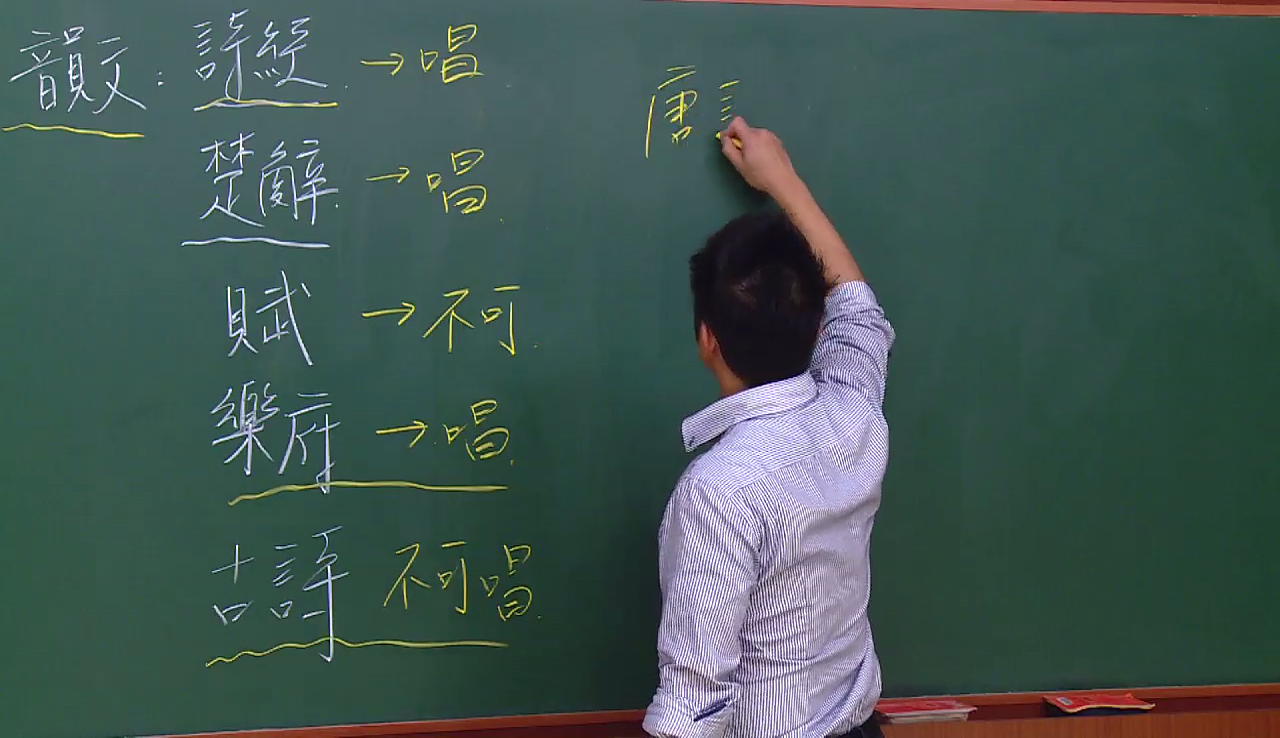 韻文：詩經→唱
楚辭→唱
賦→不可
樂府→唱
古詩 不可唱
唐